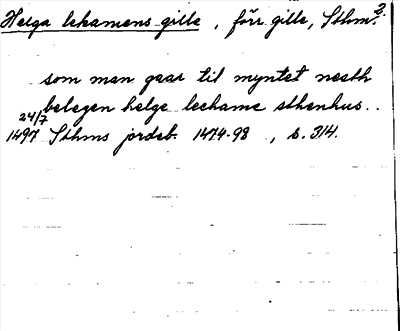 Helga lekamens gille, förr gille, Sthm. 2.
som man gaar til myntet nesth
belegen helge lechame sthenhus..
24/7
1497 Sthms jordeb. 1474-98, s. 314.